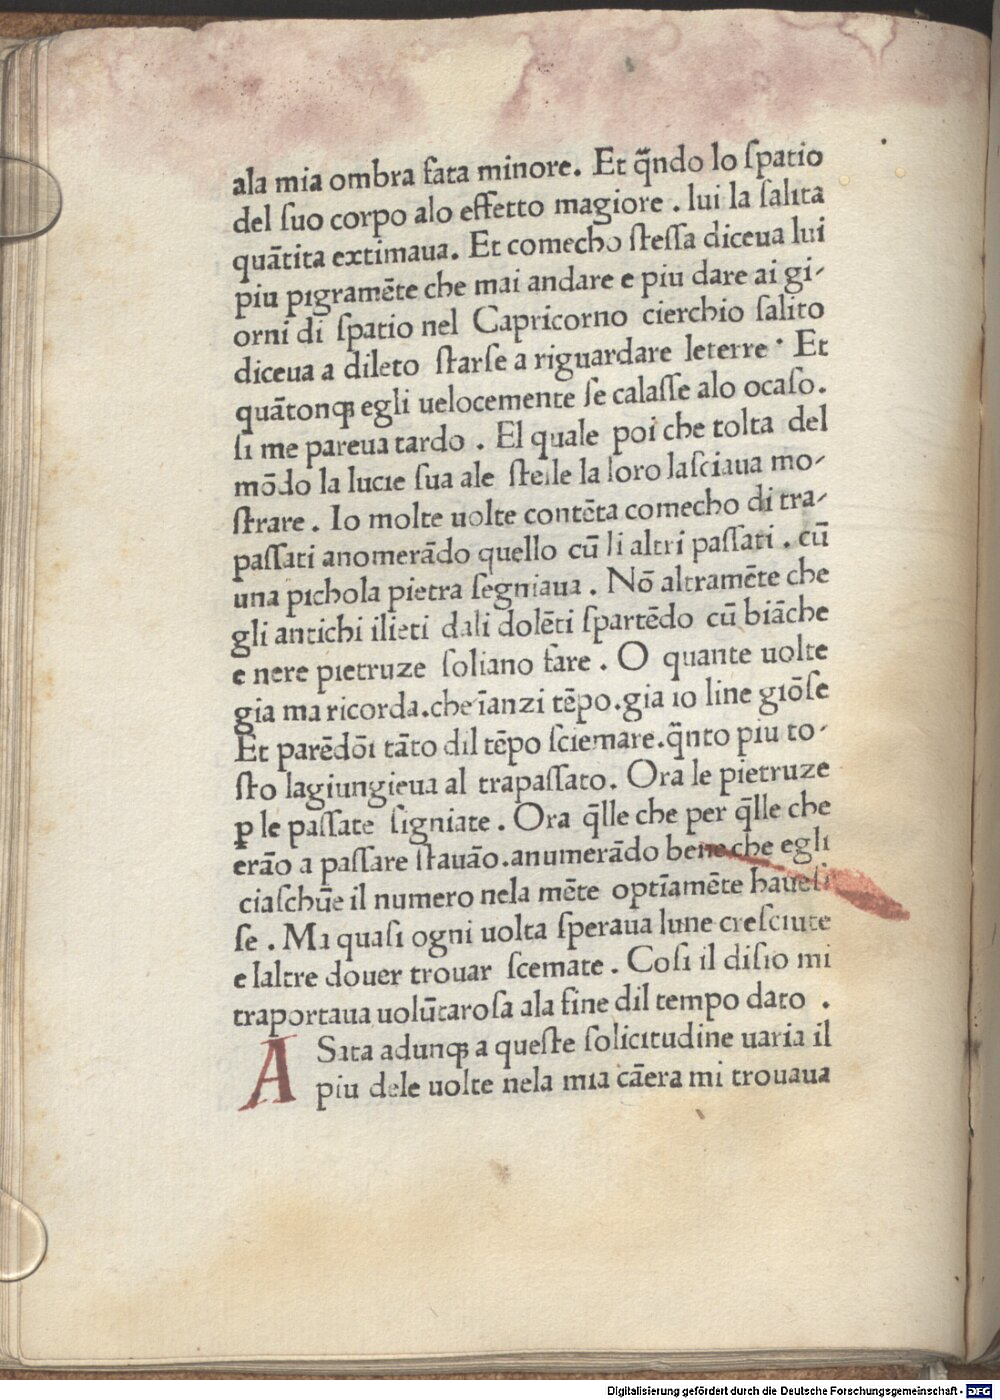 ala mia ombra fata minore. Et q̄ndo lo ſpatio
del ſuo corpo alo effetto magiore . lui la ſalita
quātita extimaua. Et comecho ſteſſa diceua lui
piu pigramēte che mai andare e piu dare ai gi-
orni di ſpatio nel Capricorno cierchio ſalito
diceua a dileto ſtarſe a riguardare leterre · Et
quātonqꝫ egli uelocemente ſe calaſſe alo ocaſo.
ſi me pareua tardo . El quale poi che tolta del
mōdo la lucie ſua ale ſtelle la loro laſciaua mo-
ſtrare . Io molte uolte contēta comecho di tra-
paſſati anomerādo quello cū li altri paſſati . cū
una pichola pietra ſegniaua . Nō altramēte che
gli antichi ilieti dali dolēti ſpartēdo cū biāche
e nere pietruze ſoliano fare . O quante uolte
gia ma ricorda.che īanzi tēpo.gia io line giōſe
Et parēdōi tāto dil tēpo ſciemare.q̄nto piu to-
ſto lagiungieua al trapaſſato. Ora le pietruze
ꝑ le paſſate ſigniate . Ora q̄lle che per q̄lle che
erāo a paſſare ſtauāo.anumerādo bene che egli
ciaſchūe il numero nela mēte optīamēte haueſi
ſe . Ma quaſi ogni uolta ſperaua lune creſciute
e laltre douer trouar ſcemate . Coſi il diſio mi
traportaua uolūtaroſa ala fine dil tempo dato .
A Sata adunqꝫ a queſte ſolicitudine uaria il
piu dele uolte nela mia cāera mi trouaua
Digitalisierung gefördert durch die Deutsche Forschungsgemeinschaft - DFG